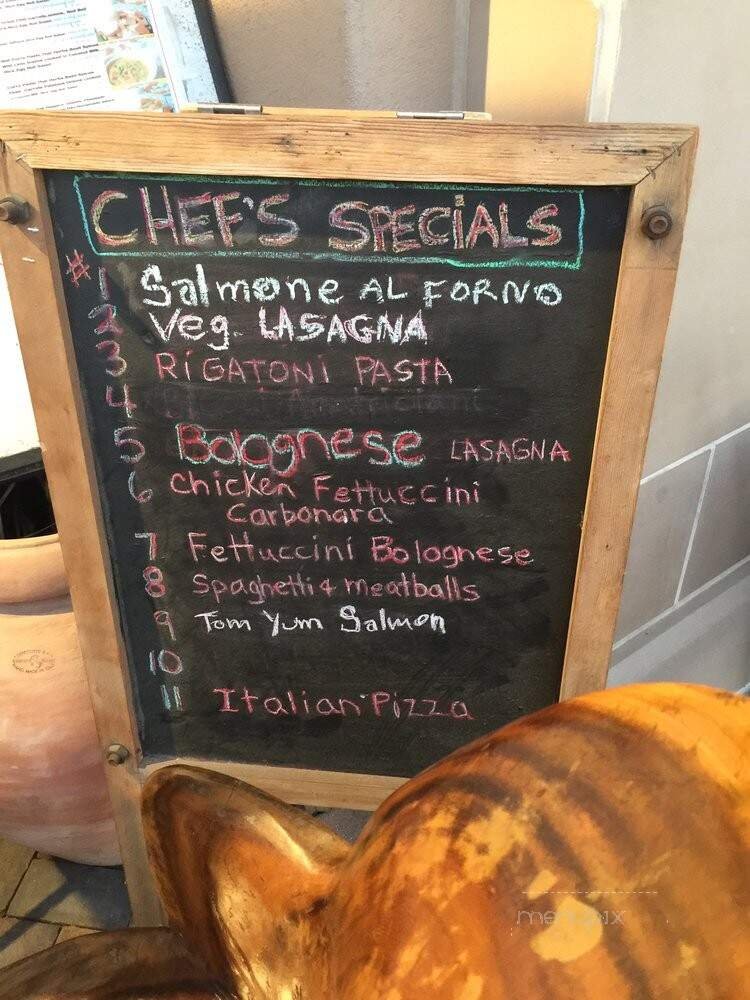 CHEF'S SPECiALS
# 1 Salmone AL FORNO
2 Veg. LASAGNA
3 RiGATONi PASTA
4
5 Bolognese LASAGNA
6 Chicken Fettuccini
Carbonara
7 Fettuccini Bolognese
8 Spaghetti & meatballs
9 Tom Yum Salmon
10
11 Italian Pizza
menupix